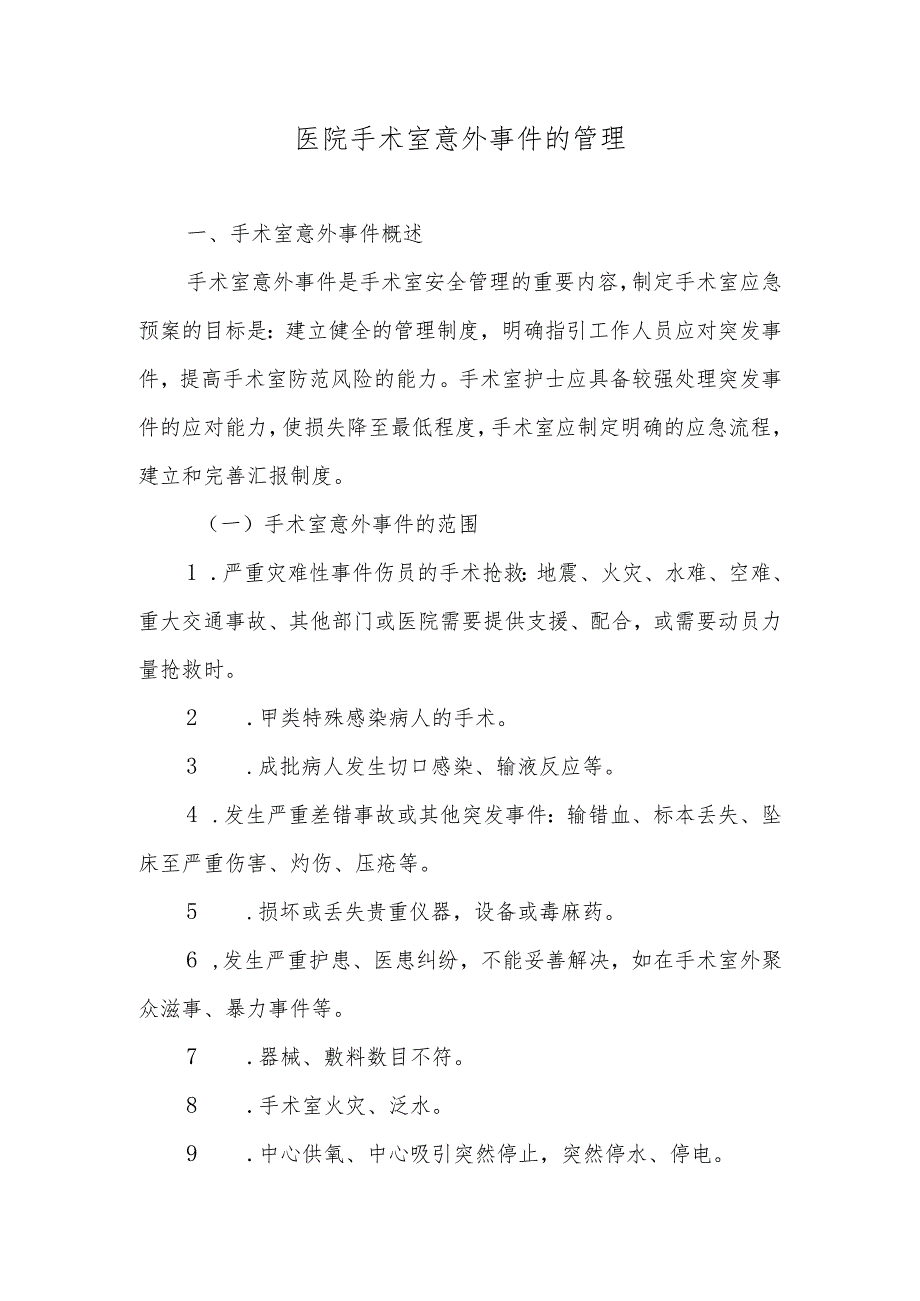 医院手术室意外事件的管理
一、手术室意外事件概述
手术室意外事件是手术室安全管理的重要内容，制定手术室应急
预案的目标是：建立健全的管理制度，明确指引工作人员应对突发事
件，提高手术室防范风险的能力。手术室护士应具备较强处理突发事
件的应对能力，使损失降至最低程度，手术室应制定明确的应急流程，
建立和完善汇报制度。
（一）手术室意外事件的范围
1 .严重灾难性事件伤员的手术抢救：地震、火灾、水难、空难、
重大交通事故、其他部门或医院需要提供支援、配合，或需要动员力
量抢救时。
2 .甲类特殊感染病人的手术。
3 .成批病人发生切口感染、输液反应等。
4 .发生严重差错事故或其他突发事件：输错血、标本丢失、坠
床至严重伤害、灼伤、压疮等。
5 .损坏或丢失贵重仪器，设备或毒麻药。
6 ,发生严重护患、医患纠纷，不能妥善解决，如在手术室外聚
众滋事、暴力事件等。
7 .器械、敷料数目不符。
8 .手术室火灾、泛水。
9 .中心供氧、中心吸引突然停止，突然停水、停电。